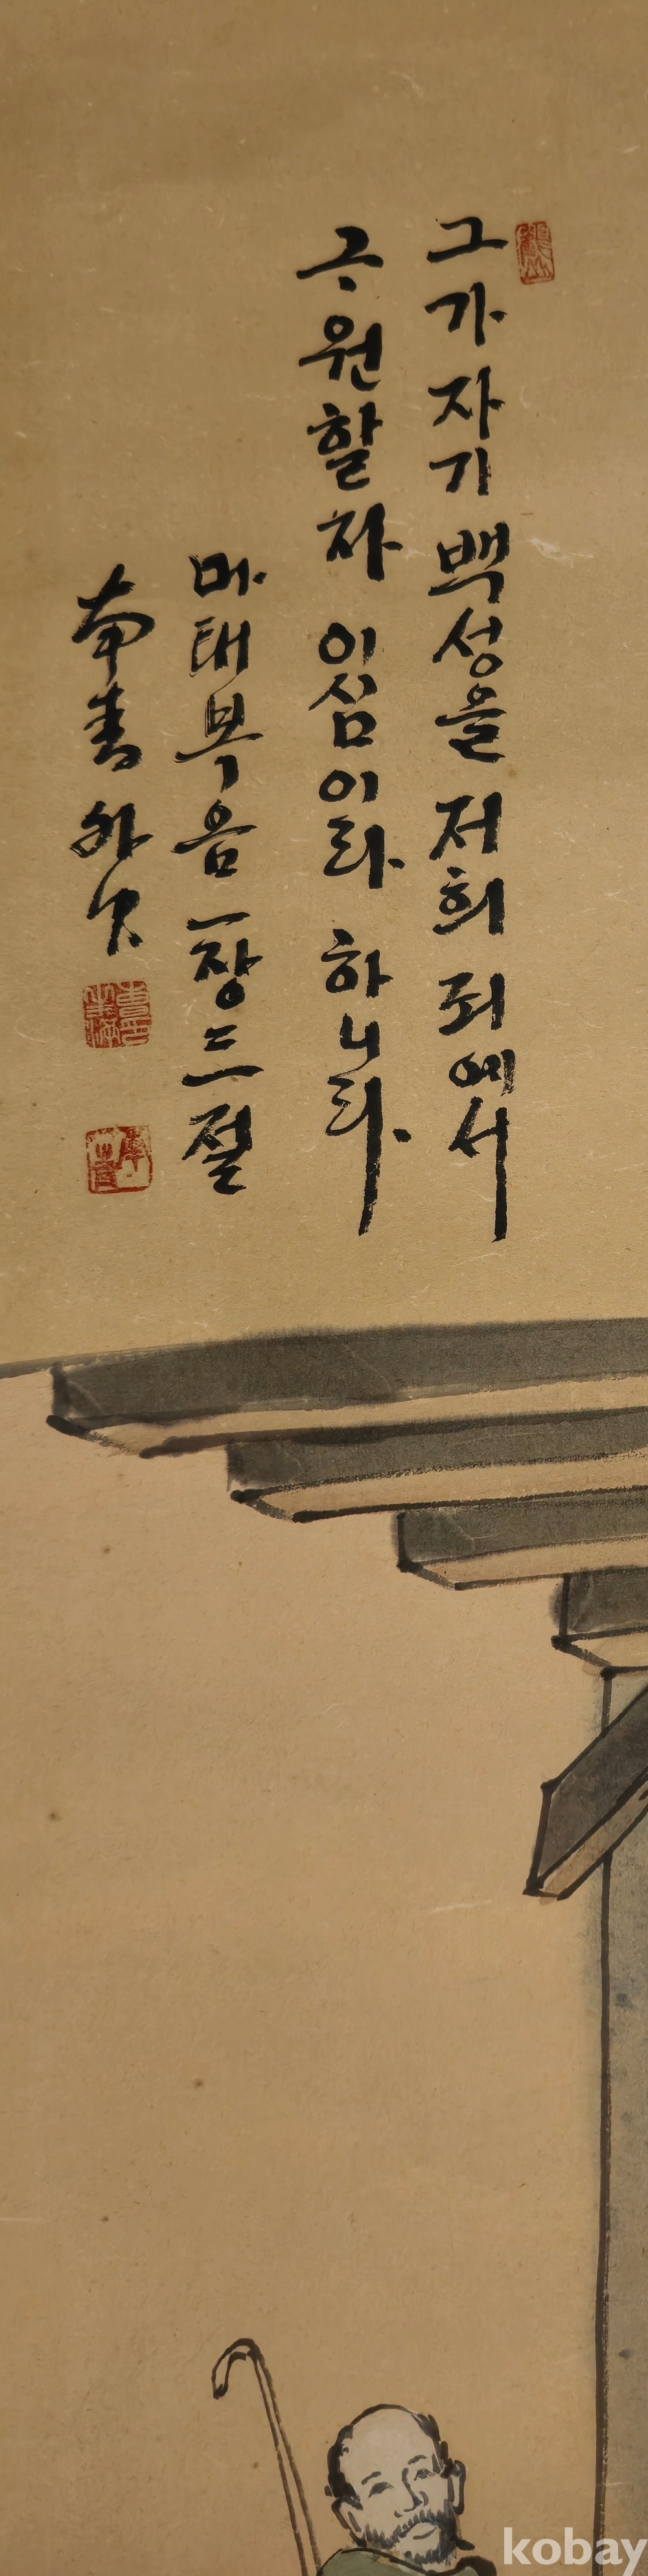 그가 자기 백성을 저희 죄에서
구원할 자 이심이라 하니라
마태복음 一장 三절
kobay